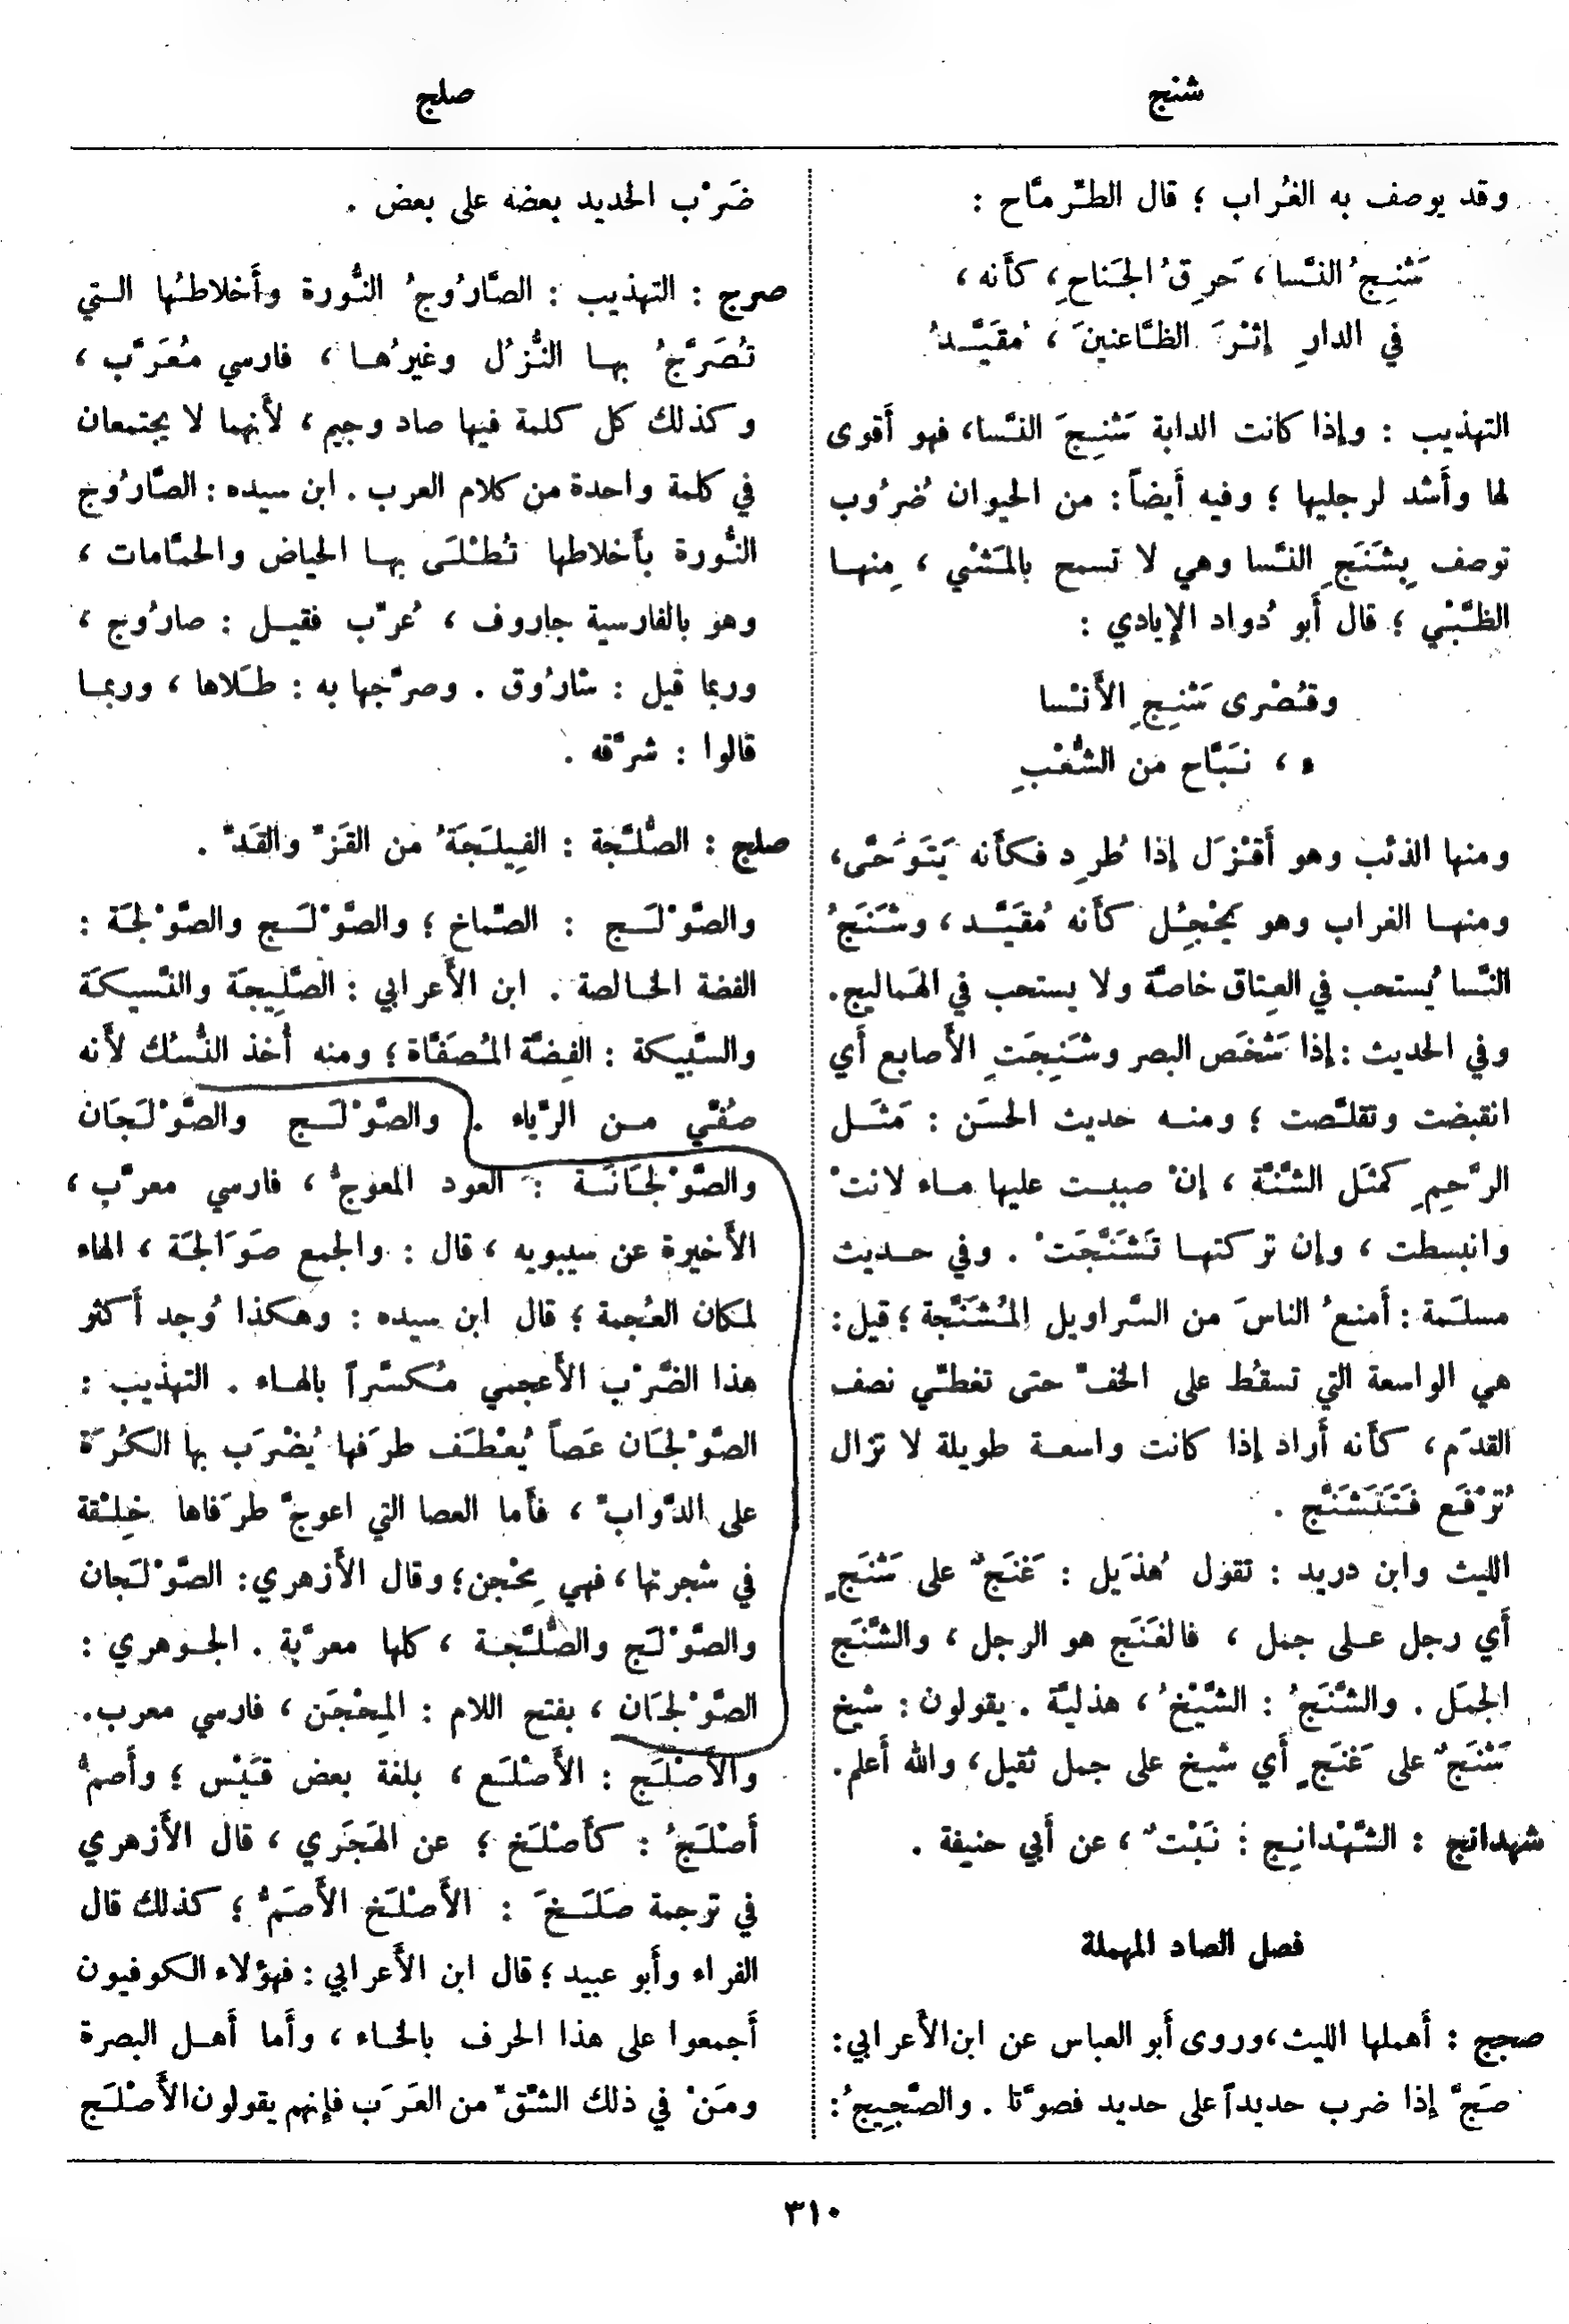 شنج
صلج
وقد يوصف به الغُراب ؛ قال الطِّرمَّاح :
شَنِجُ النَّسا ، حَرِقُ الجَناحِ ، كأَنه ،
في الدارِ إِثْرَ الظَّاعنينَ ، مُقَيَّدُ
التهذيب : وإِذا كانت الدابة شَنِجَ النَّسا ، فهو أَقوى
لها وأَشد لرجليها ؛ وفيه أَيضاً : من الحيوان ضُرُوب
توصف بِشَنَجِ النَّسا وهي لا تسمح بالمَشْي ، مِنهـا
الظَّبْي ؛ قال أَبو دُواد الإِيادي :
وقُصْرى شَنِجِ الأَنْسا
ء ، نَبَّاح من الشُّعْبِ
ومنها الذئب وهو أَقْزَل إِذا طُرِد فكأَنه يَتَوَحَّى ،
ومنهـا الغراب وهو يَحْجِل كأَنه مُقَيَّـد ، وشَنَجُ
النَّسا يُستحب في العِتاق خاصَّة ولا يستحب في الهَماليج .
وفي الحديث : إِذا شَخَص البصر وشَنِجَتِ الأَصابع أَي
انقبضت وتقلَّصت ؛ ومنـه حديث الحسَن : مَثَـل
الرَّحِمِ كمثَل الشَّنَّة ، إِنْ صببـت عليها مـاء لانتْ
وانبسطت ، وإِن تركتهـا تَشَنَّجَتْ . وفي حـديث
مسلَمة : أَمنعُ الناسَ من السَّراويل المُشَنَّجة ؛ قيل :
هي الواسعة التي تسقُط على الخفّ حتى تغطّي نصف
القدَم ، كأَنه أَراد إِذا كانت واسعـة طويلة لا تزال
تُرْفَع فَتَتَشَنَّج .
الليث وابن دريد : تقول هُذَيل : غَنَجٌ على شَنَجٍ
أَي رجل عـلى جمل ، فالغَنَج هو الرجل ، والشَّنَج
الجمَل . والشَّنَجُ : الشَّيْخُ ، هذليَّة . يقولون : شيخ
شَنَجٌ على غَنَجٍ أَي شيخ على جمل ثقيل ، والله أعلم .
شهدانج : الشَّهْدانِج : نَبْتٌ ، عن أَبي حنيفة .
فصل الصاد المهملة
صجج : أَهملها الليث ، وروى أَبو العباس عن ابن الأَعرابي :
صَجَّ إِذا ضرب حديداً على حديد فصوَّتا . والصَّجِيجُ :
ضَرْب الحديد بعضه على بعض .
صرج : التهذيب : الصَّارُوجُ النُّورة وأَخلاطُها الـتي
تُصَرَّجُ بهـا النُّزُل وغيرُهـا ، فارسي مُعَرَّب ،
وكذلك كل كلمة فيها صاد وجيم ، لأَنهما لا يجتمعان
في كلمة واحدة من كلام العرب . ابن سيده : الصَّارُوج
النُّورة بأَخلاطها تُطْلَى بهـا الحياض والحمَّامات ،
وهو بالفارسية جاروف ، عُرّب فقيـل : صارُوج ،
وربما قيل : شارُوق . وصرَّجها به : طَلاها ، وربمـا
قالوا : شرَّقه .
صلج : الصُّلَّجة : الفِيلَجَةُ من القَزِّ والقَدِّ .
والصَّوْلَـج : الصّماخ ؛ والصَّوْلَـج والصَّوْلَجَة :
الفضة الخـالصة . ابن الأَعرابي : الصَّلِيجَة والنَّسيكَة
والسَّبيكة : الفِضَّة المُصَفَّاة ؛ ومنه أُخذ النُّسُك لأَنه
صُفِّي مـن الرِّياء . والصَّوْلَـج والصَّوْلَجَان
والصَّوْلَجَانَـة : العود المعوجُّ ، فارسي معرَّب ،
الأَخيرة عن سيبويه ، قال : والجمع صَوَالجَة ، الهاء
لمكان العُجمة ؛ قال ابن سيده : وهكذا وُجد أَكثر
هذا الضَّرْب الأَعجمي مُكسَّراً بالهـاء . التهذيب :
الصَّوْلَجَان عَصاً يُعْطَف طرَفها يُضْرَب بها الكُرَة
على الدَّوابّ ، فأَما العصا التي اعوجَّ طرَفاها خِلْقة
في شجرتها ، فهي مِحْجن ؛ وقال الأَزهري : الصَّوْلَجان
والصَّوْلَج والصُّلَّجـة ، كلها معرَّبة . الجـوهري :
الصَّوْلَجَان ، بفتح اللام : المِحْجَن ، فارسي معرب .
والأَصْلَج : الأَصْلَع ، بلغة بعض قَيْس ؛ وأَصمُّ
أَصْلَجُ : كأَصْلَخ ؛ عن الهَجَري ، قال الأَزهري
في ترجمة صَلَـخَ : الأَصْلَخ الأَصَمُّ ؛ كذلك قال
الفراء وأَبو عبيد ؛ قال ابن الأَعرابي : فهؤلاء الكوفيون
أَجمعوا على هذا الحرف بالخـاء ، وأَما أَهـل البصرة
ومَنْ في ذلك الشِّقِّ من العَرَب فإِنهم يقولون الأَصْلَج
٣١٠